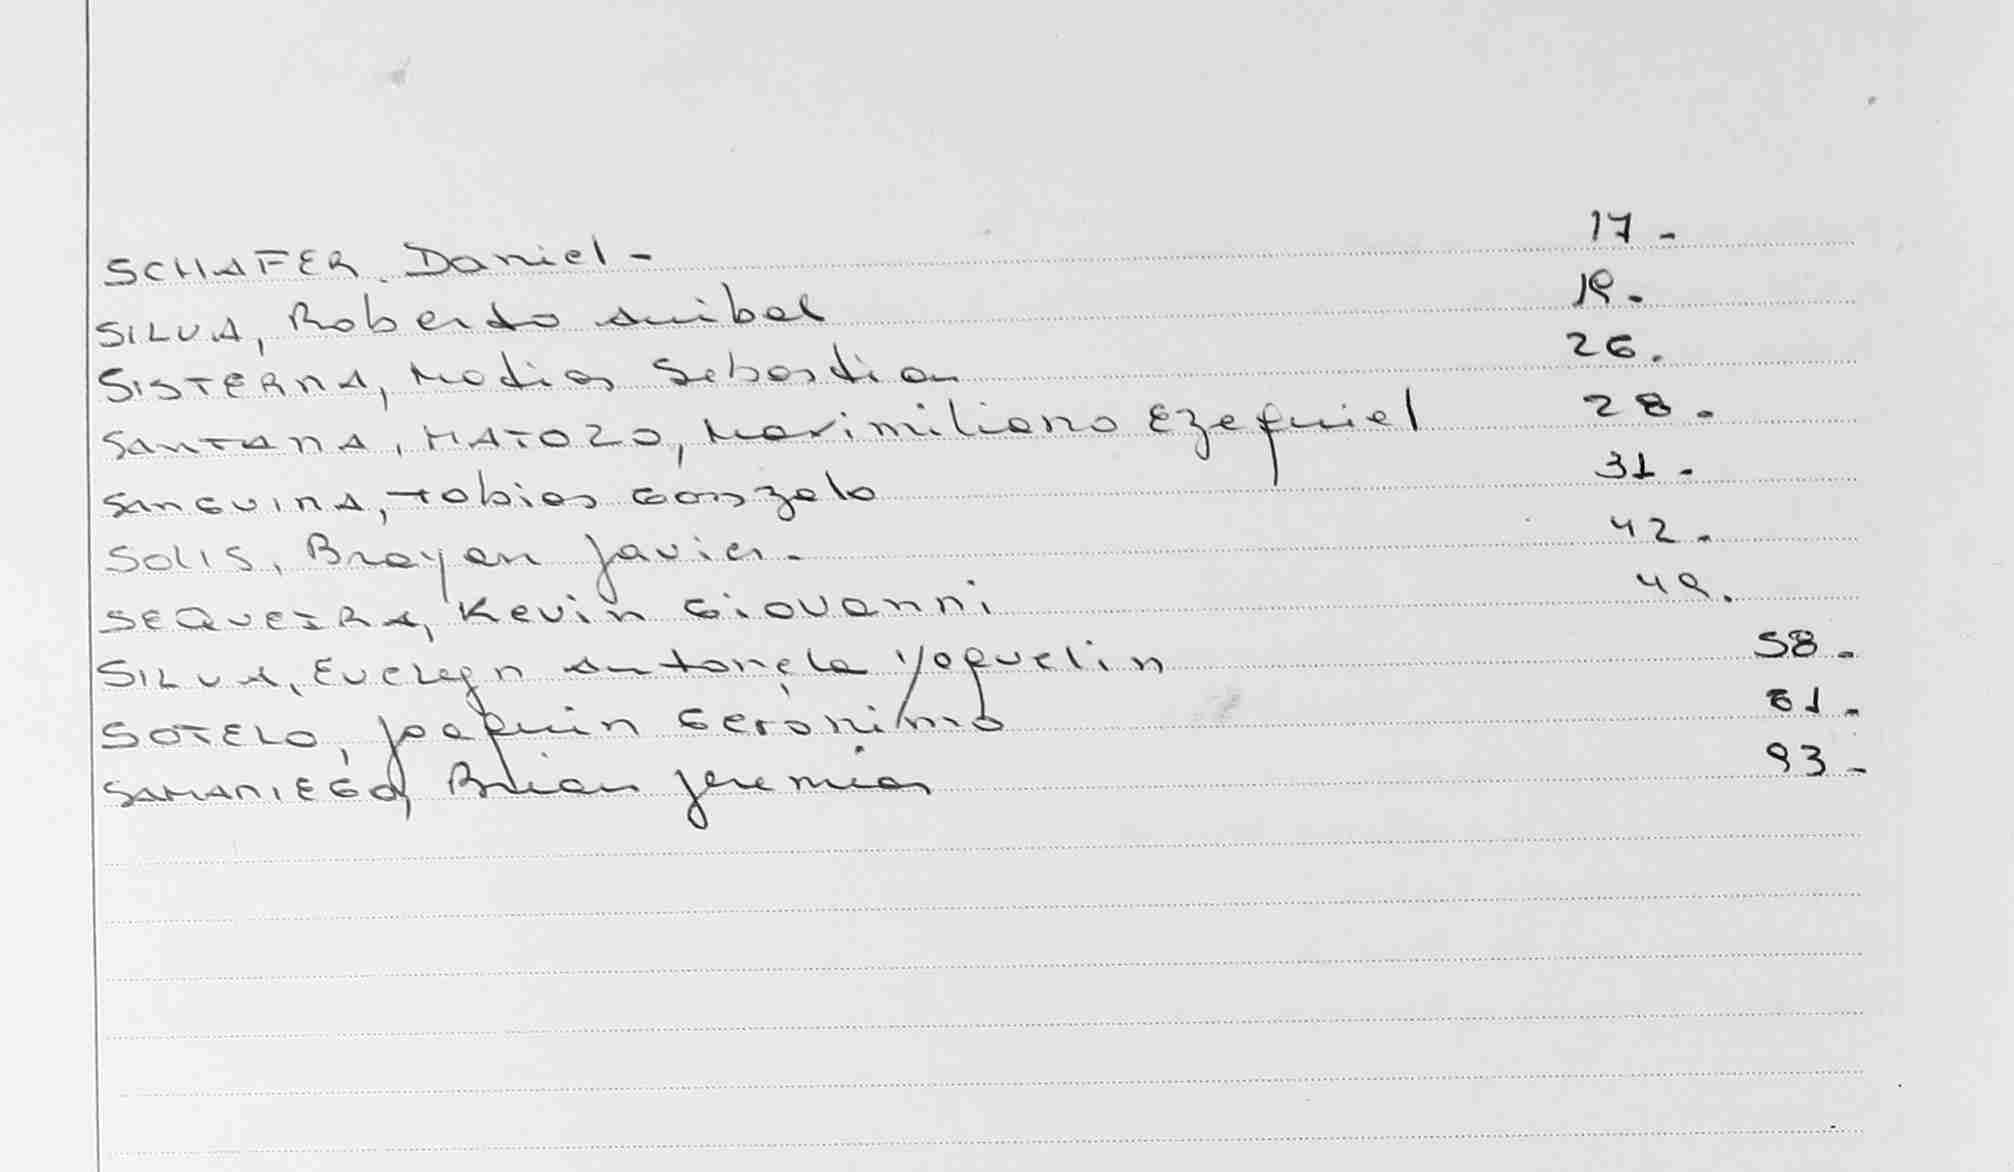 SCHAFER Daniel - 17-
SILVA, Roberto Anibal 19.
SISTERNA, Matias Sebastian 26.
SANTANA, MATOZO, Maximiliano Ezequiel 28.
SANGUINA, Tobias Gonzalo 31-
SOLIS, Brayan Javier. 42.
SEQUEIRA, Kevin Giovanni 49.
SILVA, Evelyn Antonela Yoquelin 58-
SOTELO, Joaquin Gerónimo 61-
SAMANIEGO, Brian Jeremias 93-